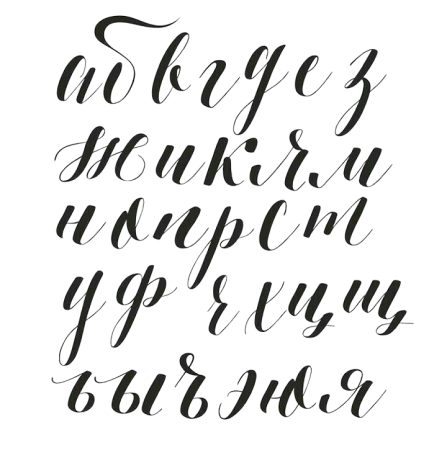 а б в г д е з
ж и к л м
н о п р с т
у ф ч х ц щ
ь ы ъ э ю я